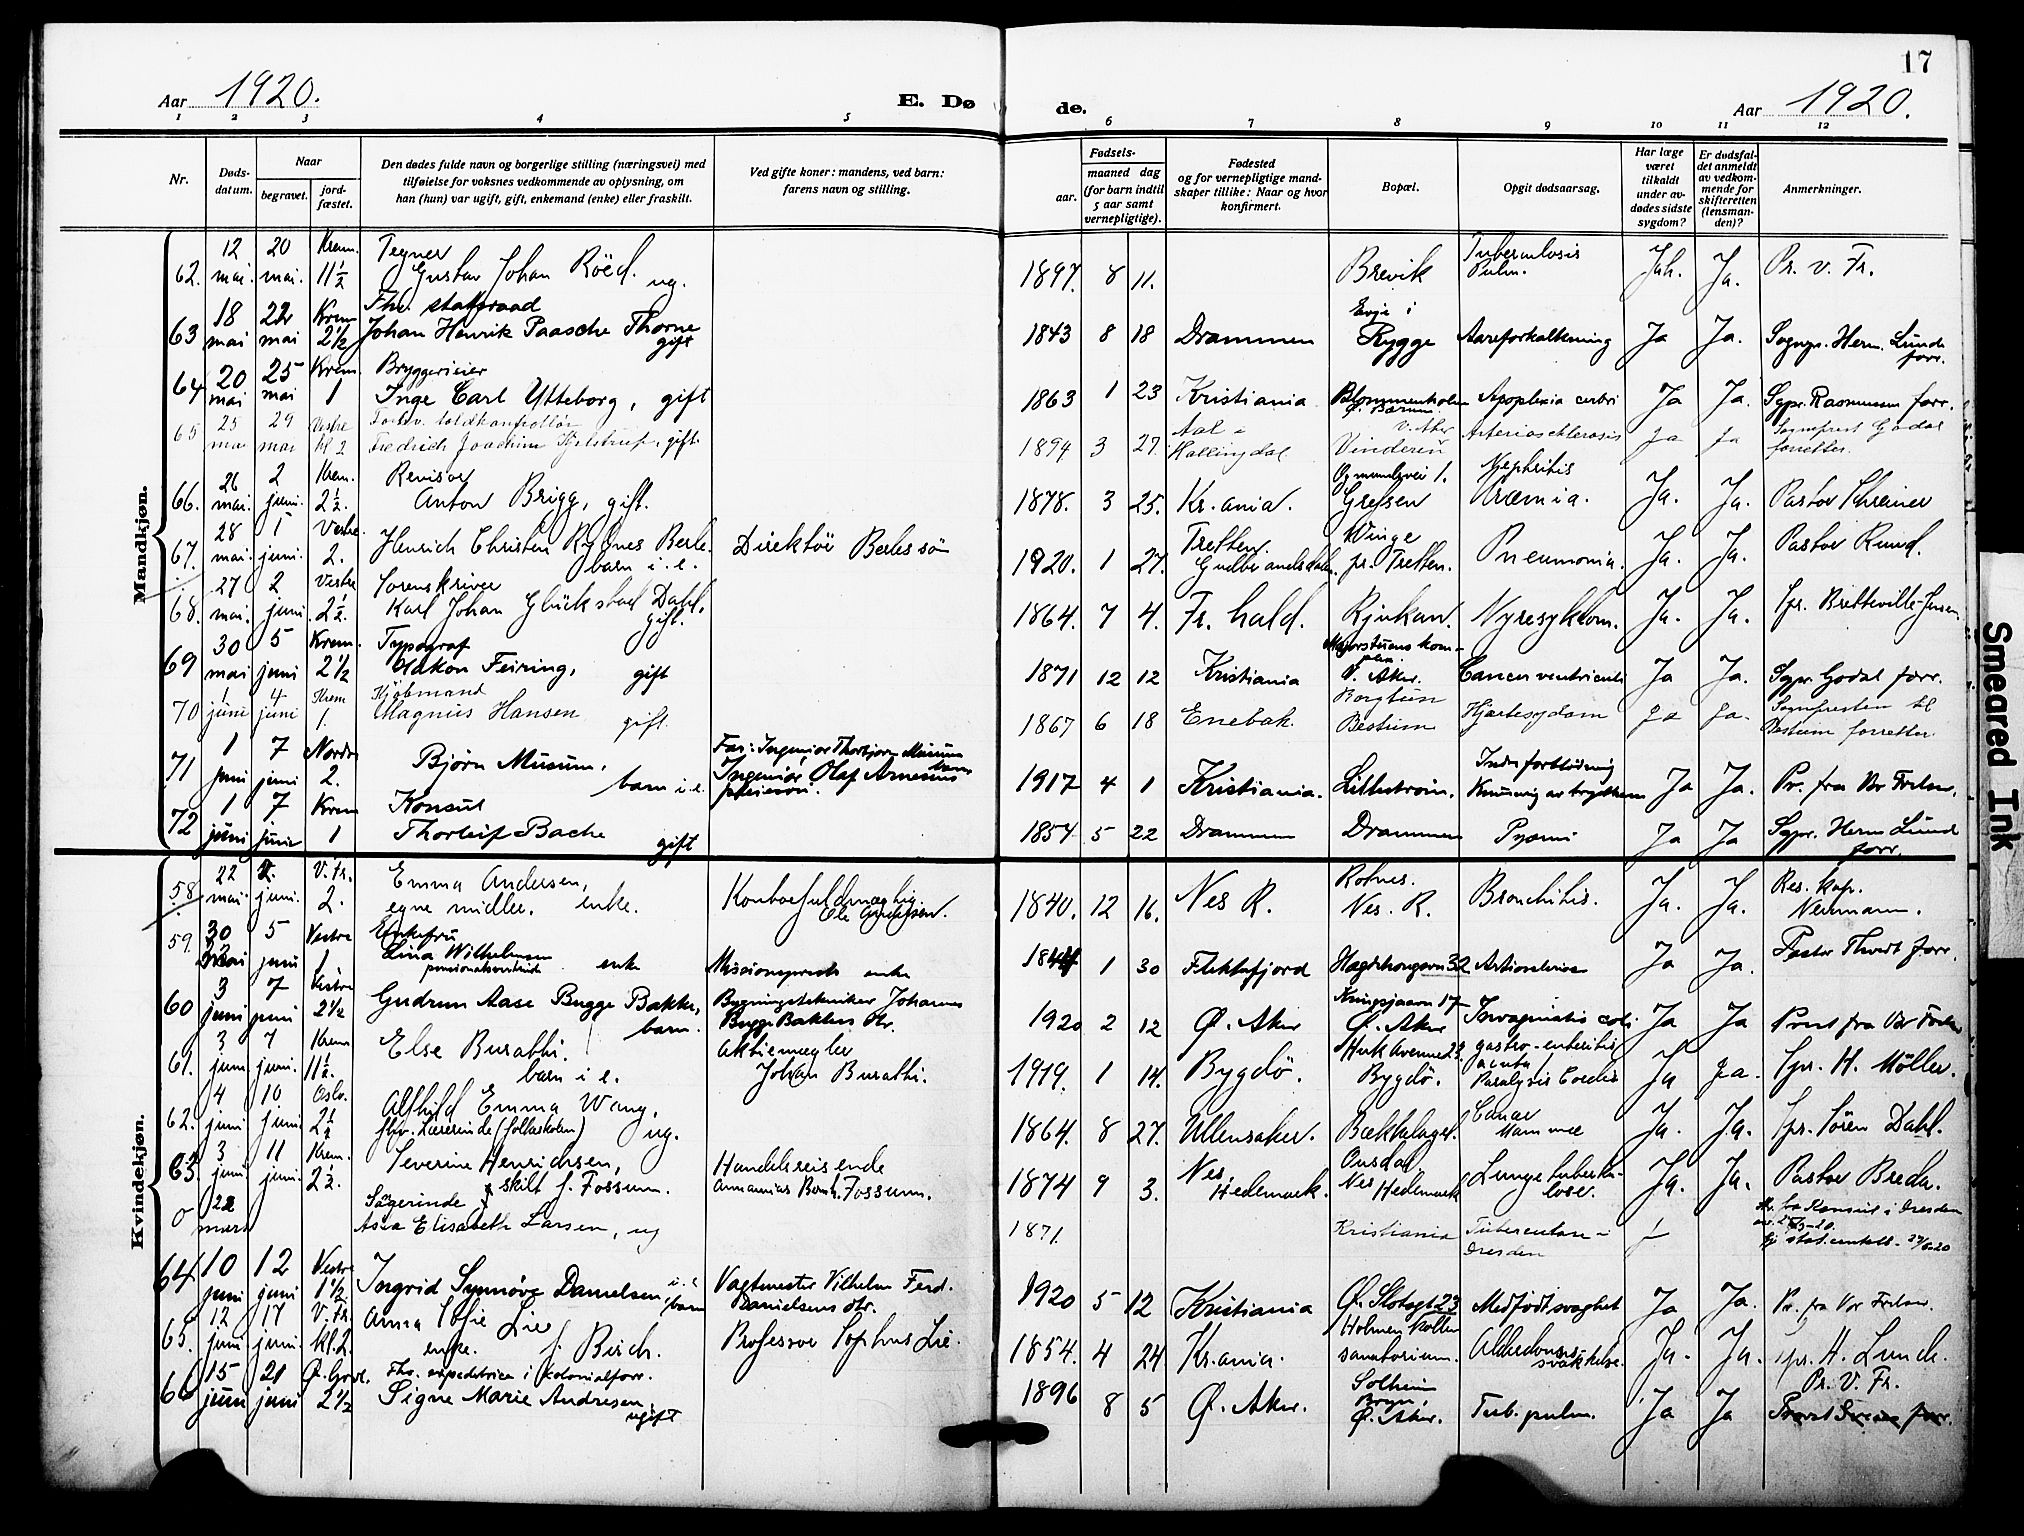 17
Aar 1920. E. Dø de. Aar 1920.
1 2 3 4 5 6 7 8 9 10 11 12
Nr. Døds-datum. Naar begravet. jord-fæstet. Den dødes fulde navn og borgerlige stilling (næringsvei) med tilføielse for voksnes vedkommende av oplysning, om han (hun) var ugift, gift, enkemand (enke) eller fraskilt. Ved gifte koner: mandens, ved barn: farens navn og stilling. Fødsels- aar. maaned dag (for barn indtil 5 aar samt vernepligtige). Fødested og for vernepligtige mand-skaper tillike: Naar og hvor konfirmert. Bopæl. Opgit dødsaarsag. Har læge været tilkaldt under av-dødes sidste sygdom? Er dødsfal-det anmeldt av vedkom-mende for skifteretten (lensman-den)? Anmerkninger.
Mandkjøn.
62. 12 mai. 20 mai. Krem. 11½ Tegner Gustav Johan Röed. ug. 1897. 8 11. Brevik Tuberculosis Pulm. Ja. Pr. v. Fr.
63 18 mai 22 mai Krem 2½ Fhv. statsraad Johan Henrik Paasche Thorne gift 1843 8 18 Drammen Evje i Rygge Aareforkalkning Ja Ja. Sognpr. Herm. Lunde forr.
64 20 mai 25 mai Krem. 1 Bryggerieier Inge Carl Ytteborg, gift 1863 1 23 Kristiania Blommenholm Ø. Bærum Apoplexia cerebri Ja Ja. Sgpr. Rasmussen forr.
65 25 mai 29 mai Vestre kl 2 Forhv. toldkontrollør Fredrich Joachim gift. 1894 3 27. Aal i Hallingdal V. Aker Vinderen Arteriosclerosis Ja Ja Sogneprest Godal forretter.
66. 26 mai. 2 juni. Krem. 2½. Revisor Anton Brigg, gift. 1878. 3 25. Kr.ania. Ogmundsvei 1. Grefsen Nephritis Uræmia. Ja. Ja. Pastor Schreiner
67. 28 mai. 1 juni. Vestre. 2. Henrich Christen Rygnes Berle. barn i. e. Direktör Berles sön 1920. 1 27. Tretten. Gudbrandsdalen. Winge pr. Tretten. Pneumonia. Ja. Ja. Pastor Rund.
68. 27 mai. 2 juni Vestre 2½. Sorenskriver Karl Johan Glückstad Dahl. gift. 1864. 7 4. Fr. hald. Rjukan. Nyresykdom. Ja. Ja. Spr. Bretteville-Jensen
69 30 mai 5 juni Krem. 2½ Typograf Haakon Feiring, gift 1871 12 12 Kristiania Majorstuens Ø. Aker. Cancer ventriculi Ja Ja. Sgpr. Godal forr.
70 1 juni 4 juni Krem 1. Kjöbmand Magnus Hansen gift. 1867 6 18 Enebak. Borgtun Bestum Hjertesygdom Ja Ja. Sognpresten til Bestum forretter.
71 1 juni 7 juni Nordre 2. Bjørn Musum. barn i. e. Far: Ingeniør Thorbjørn Musum Ingeniør Olaf Arnesens 1917 4 1 Kristiania. Lillestrøm. Indre forblödning Knusning av brystkassen Ja Ja. Pr. fra Vor Frelser.
72 1 juni 7 juni Krem 1 Konsul Thorleif Bache gift 1854 5 22 Drammen Drammen Pyæmi Ja Ja Sgpr. Herm Lunde forr.
Kvindekjøn.
58 22 mai. 2. juni. V. Fr. 2. Emma Andersen, egne midler. enke. Kontorfuldmægtig Ole Andersen. 1840. 12 16. Nes R. Rotnes. Nes. R. Bronchitis. Ja. Ja. Res. kap. Neumann.
59. 30 mai 5 juni Vestre 1 Enkefru Lina Wilhelmsen enke Missionsprests enke 1844 1 30 Flekkefjord Hægdehougsvn 32 Ja Ja. Pastor Thvedt forr.
60 3 juni 7 juni Vestre 2½ Gudrun Aase Bugge Bakke, barn. Bygningstekniker Johannes Bugge Bakkes dtr. 1920 2 12 Ø. Aker Kringsjaavn 17 Ø. Aker Invaginatio coli Ja Ja Prest fra Vor Frelser
61. 3 juni 7 juni. Krem 11½. Else Buraththi. barn i e. Aktiemægler Johan Buraththi. 1919. 1 14. Bygdö. Huk Avenue 23. Bygdö. gastro-enteritis acuta Paralysis Cordis Ja Ja. Spr. H. Möller.
62. 4 juni 10 juni. Oslo. 2½ Alfhild Emma Wang, fhv. Lærerinde (folkeskolen) ug. 1864. 8 27. Ullensaker. Bækkelaget. Cancer Mammae Ja. Ja. Spr. Sören Dahl.
63. 3 juni 11 juni. Krem. 2½. Severine Henrichsen, skilt f. Fossum. Handelsreisende Ananias Fossum. 1874 9 3. Nes Hedemark. Nes Hedemark Lungetuberkulose. Ja. Ja. Pastor Breda.
0 22 mars Sygerinde Asta Elisabeth Larsen, ug 1871. Kristiania Tuberculose - Dresden Pr. fra Konsul i Dresden
64 10 juni 12 juni Vestre 1½ Ingrid Synnöve Danielsen i. e barn Vagtmester Vilhelm Ferd. Danielsens dtr. 1920 5 12 Kristiania Ø. Slotsgt 23 Medfödt svaghet Ja Ja. Pr. fra Vor Frelser.
65. 12 juni 17 juni. V. Fr. Kl. 2. Anna Sofie Lie enke. f. Birch. Professor Sophus Lie. 1854. 4 24 Kr.ania. Holmenkollen sanatorium. Alderdomssvækkelse. Ja. Ja. Spr. H. Lund. Pr. V. Fr.
66 15 juni 21 juni Ø. Gravl. 2½ Fhv. expeditrice i kolonialforr. Signe Marie Andresen, ugift 1896 8 5 Ø. Aker. Solheim Bryn, Ø. Aker. Tub. pulm. Ja Ja forr.
Smeared Ink